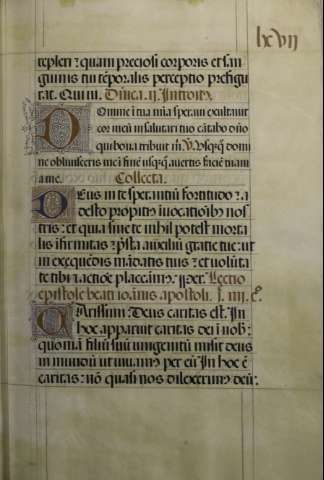 lxvij
repleti ⁊ quam preciosi corporis et san
guinis tui tēporalis perceptio prefigu
rat. Qui ui. Dn̄ica .ij. Introit9
Domine ī tua mīa speraui exultauit
cor meū in salutari tuo cātabo dn̄o
qui bona tribuit m̄ V. Usq̄q̄ domi
ne obliuisceris me ī finē usq̄q̄ auertis faciē tuam
a me. Collecta.
Deus in te sperantiū fortitudo ⁊ a
desto propiti9 īuocatiōib9 nos
tris: et quia sine te nihil potest morta
lis īfirmitas ⁊ p̄sta auxiliū gratie tue: ut
in exequēdis mādatis tuis ⁊ et volūta
te tibi ⁊ actiōe placeam9. Per. Lectio
epistole beati ioānis apostoli. .iiij. c.
Carissimi: Deus caritas est. In
hoc apparuit caritas dei ī nob̄:
quoniā filiū suū unigenitū misit deus
in mundū ut uiuam9 per eū. In hoc ē
caritas: nō quasi nos dilexerim9 deū: